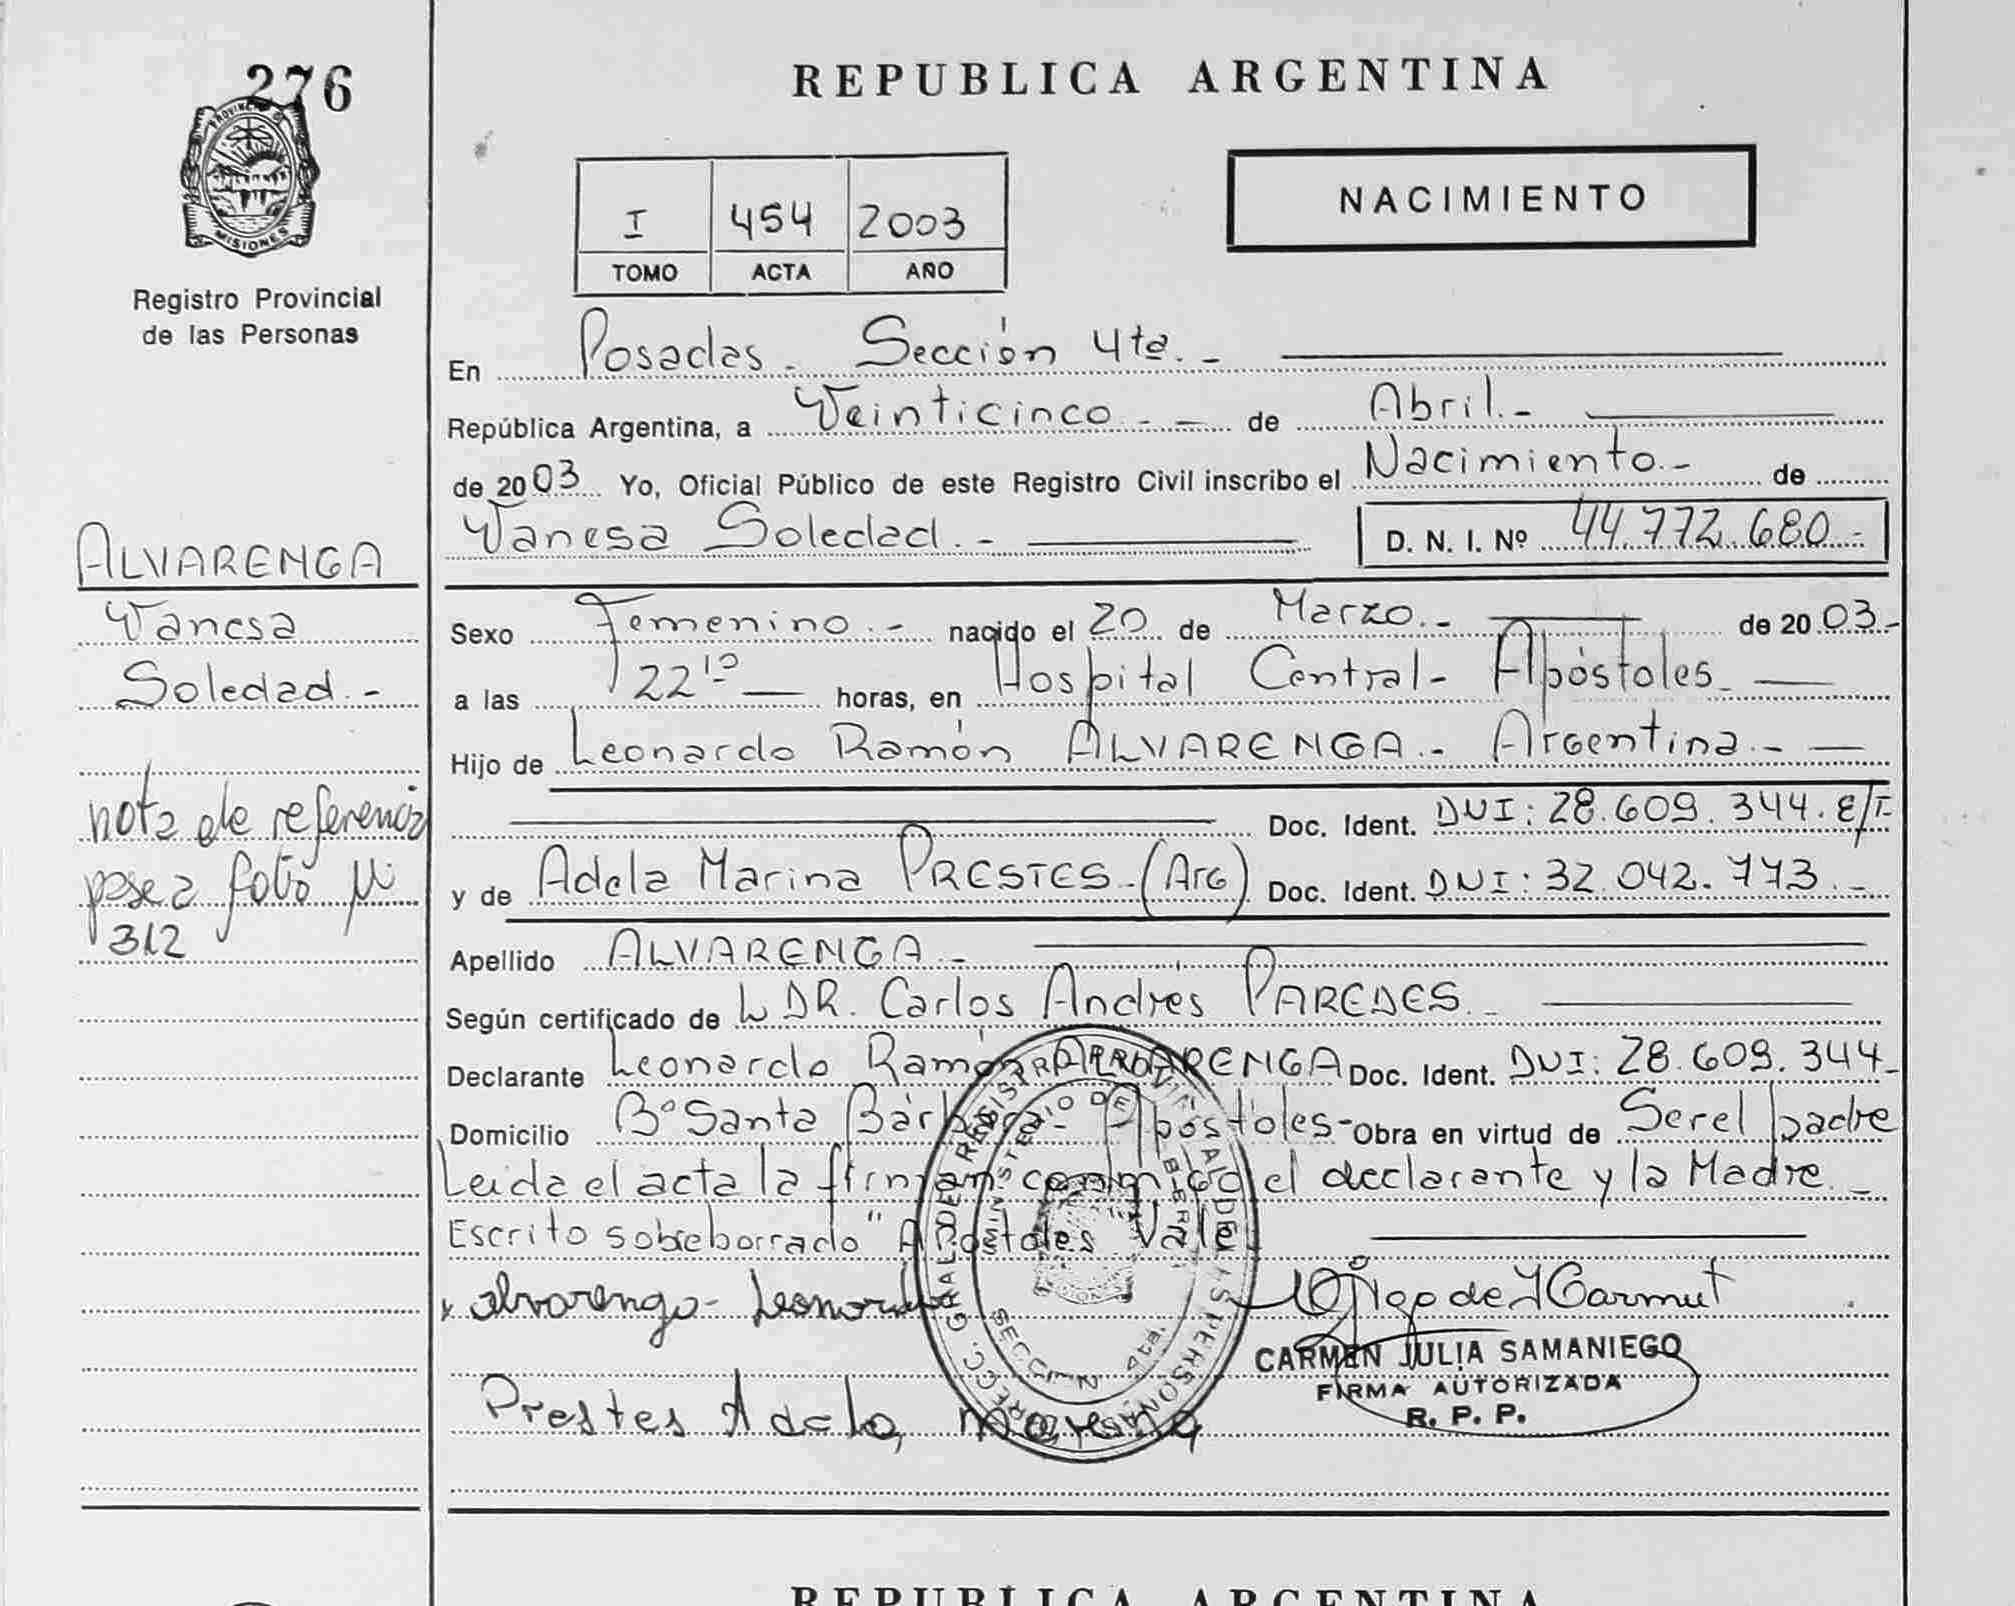 276
REPUBLICA ARGENTINA
PROVINCIA DE
MISIONES
Registro Provincial
de las Personas
NACIMIENTO
I 454 2003
TOMO ACTA AÑO
En Posadas - Sección 4ta. -
República Argentina, a Veinticinco - - de Abril. -
de 2003 Yo, Oficial Público de este Registro Civil inscribo el Nacimiento. - de
Vanesa Soledad. - D. N. I. Nº 44.772.680.-
ALVARENGA
Vanesa
Soledad. -
Sexo Femenino. - nacido el 20 de Marzo. - de 2003.-
a las 22 10 horas, en Hospital Central - Apóstoles -
Hijo de Leonardo Ramón ALVARENGA. - Argentina. -
Doc. Ident. DNI: 28.609.344. E/T
y de Adela Marina PRESTES - (Arg) Doc. Ident. DNI: 32.042.773. -
nota de referencia
pase a folio Nº
312
Apellido ALVARENGA -
Según certificado de DR. Carlos Andrés PAREDES. -
Declarante Leonardo Ramón ALVARENGA Doc. Ident. DNI: 28.609.344 -
Domicilio Bº Santa Bárbara - Apóstoles - Obra en virtud de Ser el padre
Leída el acta la firman conmigo el declarante y la Madre. -
Escrito sobreborrado "Apóstoles" Vale
x alvarenga - Leonardo
CARMEN JULIA SAMANIEGO
FIRMA AUTORIZADA
R. P. P.
Prestes Adela, marina
SECCION 4ta.
REPUBLICA ARGENTINA